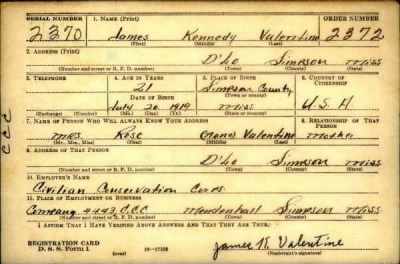 SERIAL NUMBER 1. NAME (Print) ORDER NUMBER
2370 James Kennedy Valentine 2372
(First) (Middle) (Last)
2. ADDRESS (Print)
D'Lo Simpson Miss
(Number and street or R. F. D. number) (Town) (County) (State)
3. TELEPHONE 4. AGE IN YEARS 5. PLACE OF BIRTH 6. COUNTRY OF CITIZENSHIP
21 Simpson County
DATE OF BIRTH (Town or county)
July 20, 1919 Miss U.S.A
(Exchange) (Number) (Mo.) (Day) (Yr.) (State or country)
7. NAME OF PERSON WHO WILL ALWAYS KNOW YOUR ADDRESS 8. RELATIONSHIP OF THAT PERSON
Mrs. Rose (none) Valentine Mother
(Mr., Mrs., Miss) (First) (Middle) (Last)
9. ADDRESS OF THAT PERSON
D'Lo Simpson Miss
(Number and street or R. F. D. number) (Town) (County) (State)
10. EMPLOYER'S NAME
Civilian Conservation Corps
11. PLACE OF EMPLOYMENT OR BUSINESS
Company 4443 C.C.C. Mendenhall Simpson Miss
(Number and street or R. F. D. number) (Town) (County) (State)
I AFFIRM THAT I HAVE VERIFIED ABOVE ANSWERS AND THAT THEY ARE TRUE.
REGISTRATION CARD
D. S. S. Form 1 (over) 16—17105 James K. Valentine
(Registrant's signature)
CCC